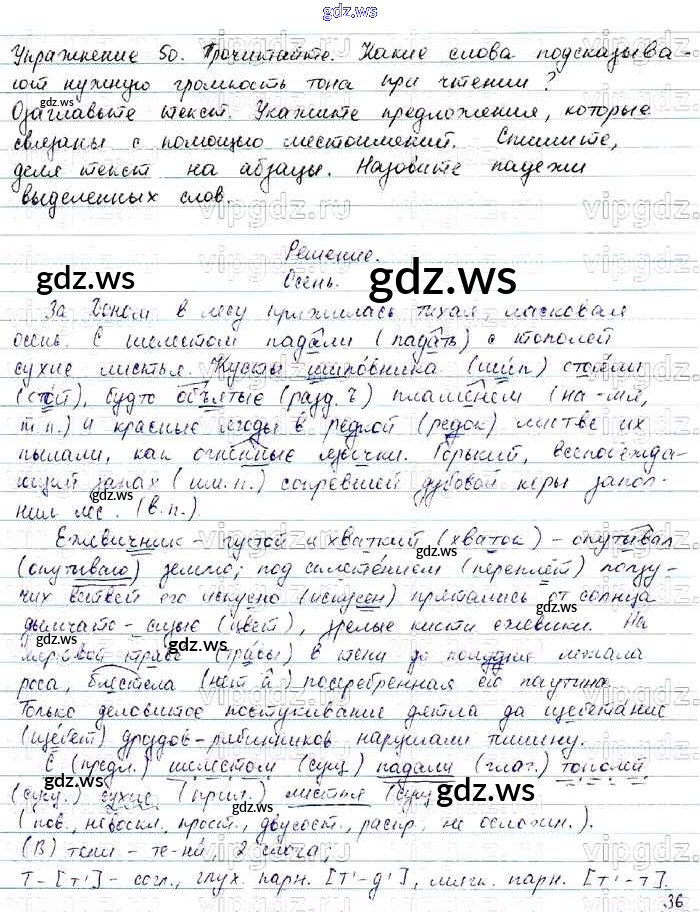 gdz.ws
Упражнение 50. Прочитайте. Какие слова подсказыва-
ют нужную громкость тона при чтении?
gdz.ws
Озаглавьте текст. Укажите предложения, которые
gdz.ws
связаны с помощью местоимений. Спишите,
деля текст на абзацы. Назовите падежи
выделенных слов.
vipgdz.ru
Решение.
gdz.ws
gdz.ws
Осень.
За Доном в лесу прижилась тихая, ласковая
осень. С шелестом падали (падать) с тополей
сухие листья. Кусты шиповника (шип) стояли
(стой), будто объятые (разд. ъ) пламенем (на -мя,
т.п.) и красные ягоды в редкой (редок) листве их
пылали, как огненные язычки. Горький, всепобежда-
ющий запах (им.п.) сопревшей дубовой коры запол-
gdz.ws
нил лес. (в.п.).
Ежевичник - густой и хваткий (хваток) - опутывал
gdz.ws
(опутываю) землю; под сплетением (переплёт) ползу-
чих ветвей его искусно (искусен) прятались от солнца
gdz.ws
дымчато-сизые (цвет), зрелые кисти ежевики. На
мертвой траве (травы) в тени до полудня лежала
gdz.ws
роса, блестела (нет а) посеребренная ею паутина.
Только деловитое постукивание дятла да щебетание
(щебет) дроздов-рябинников нарушали тишину.
С (предл.) шелестом (сущ.) падали (глаг.) тополей
gdz.ws
(сущ.) сухие (прил.) листья (сущ.
gdz.ws
(пов., невоскл., прост., двусост., распр., не осложн.).
(В) тени - те-ни, 2 слога;
т - [т'] - согл., глух. парн. [т'-д'], мягк. парн. [т'-т].
36
gdz.ws